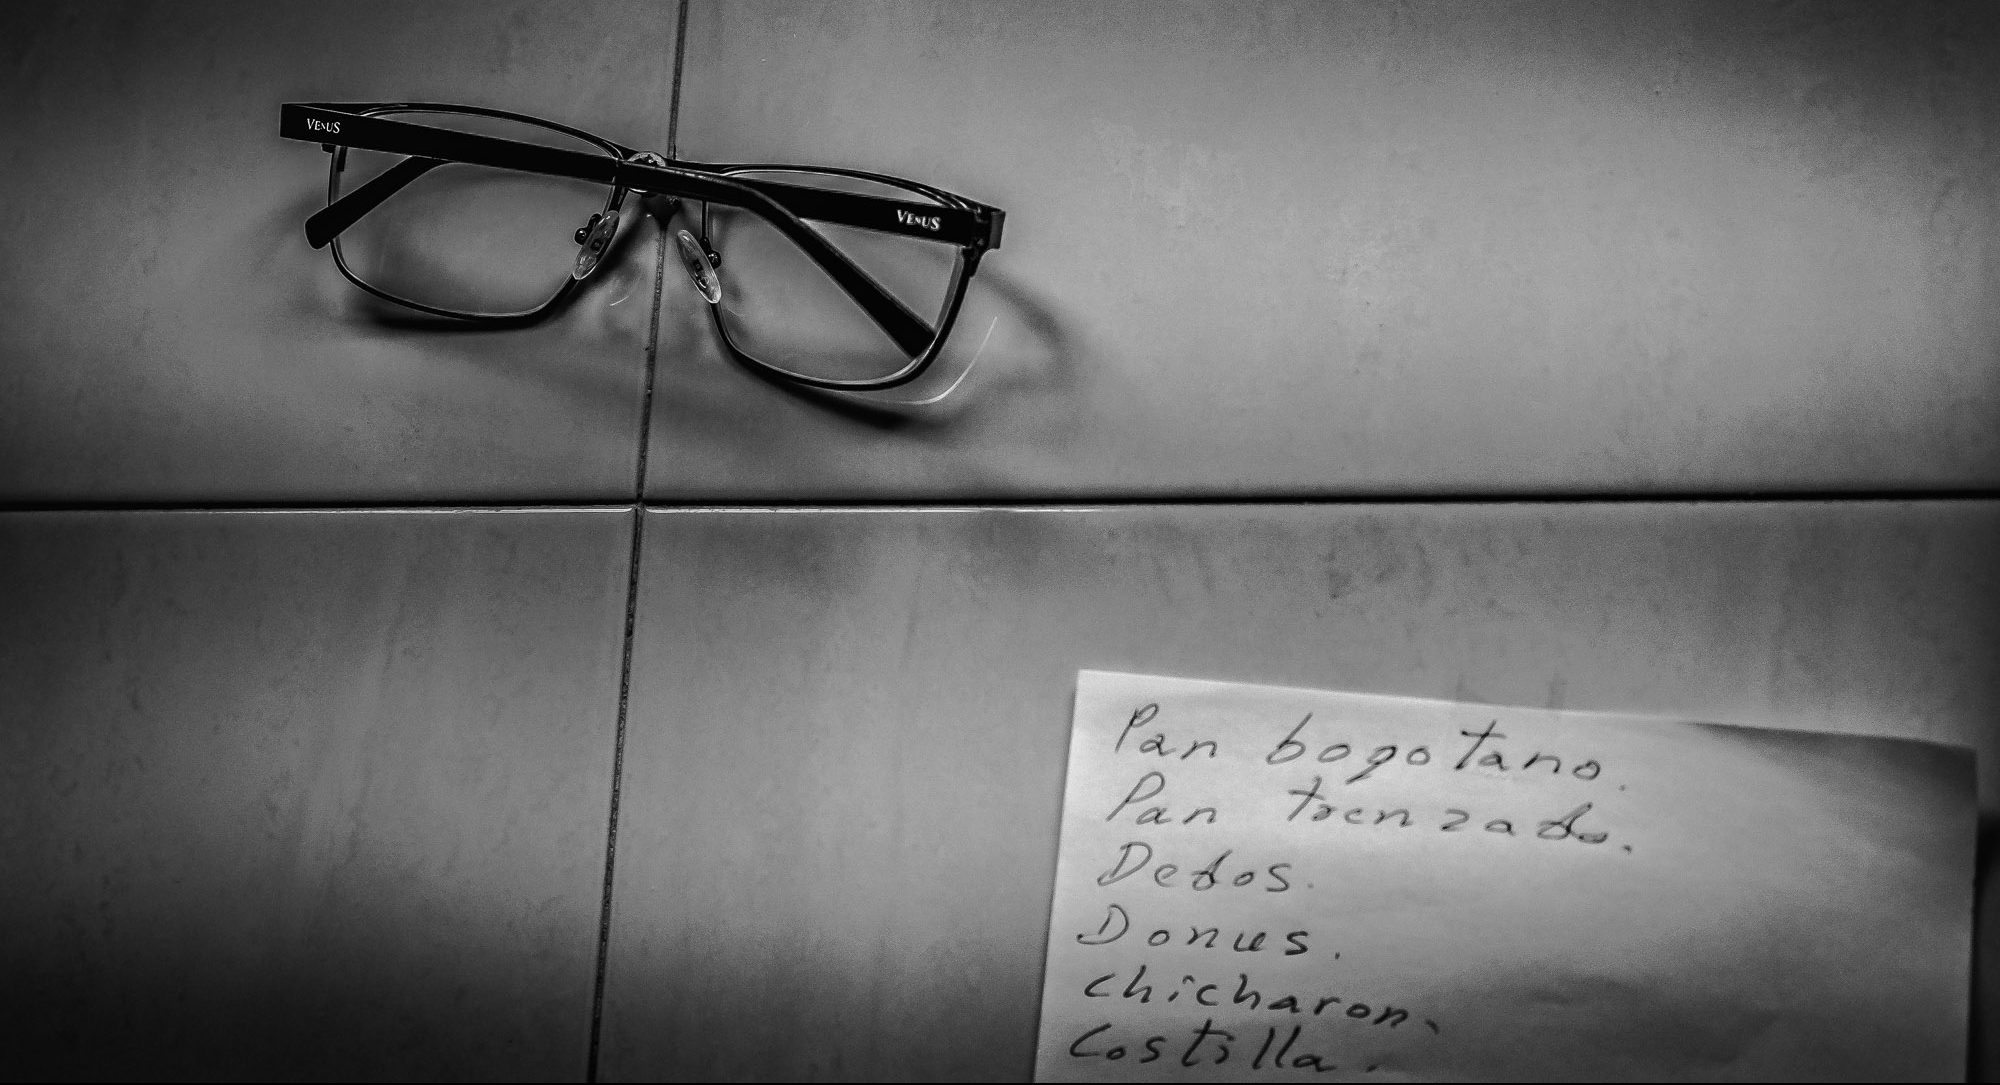 VENUS
VENUS
Pan bogotano.
Pan trenzado.
Dedos.
Donus.
chicharon.
Costilla.